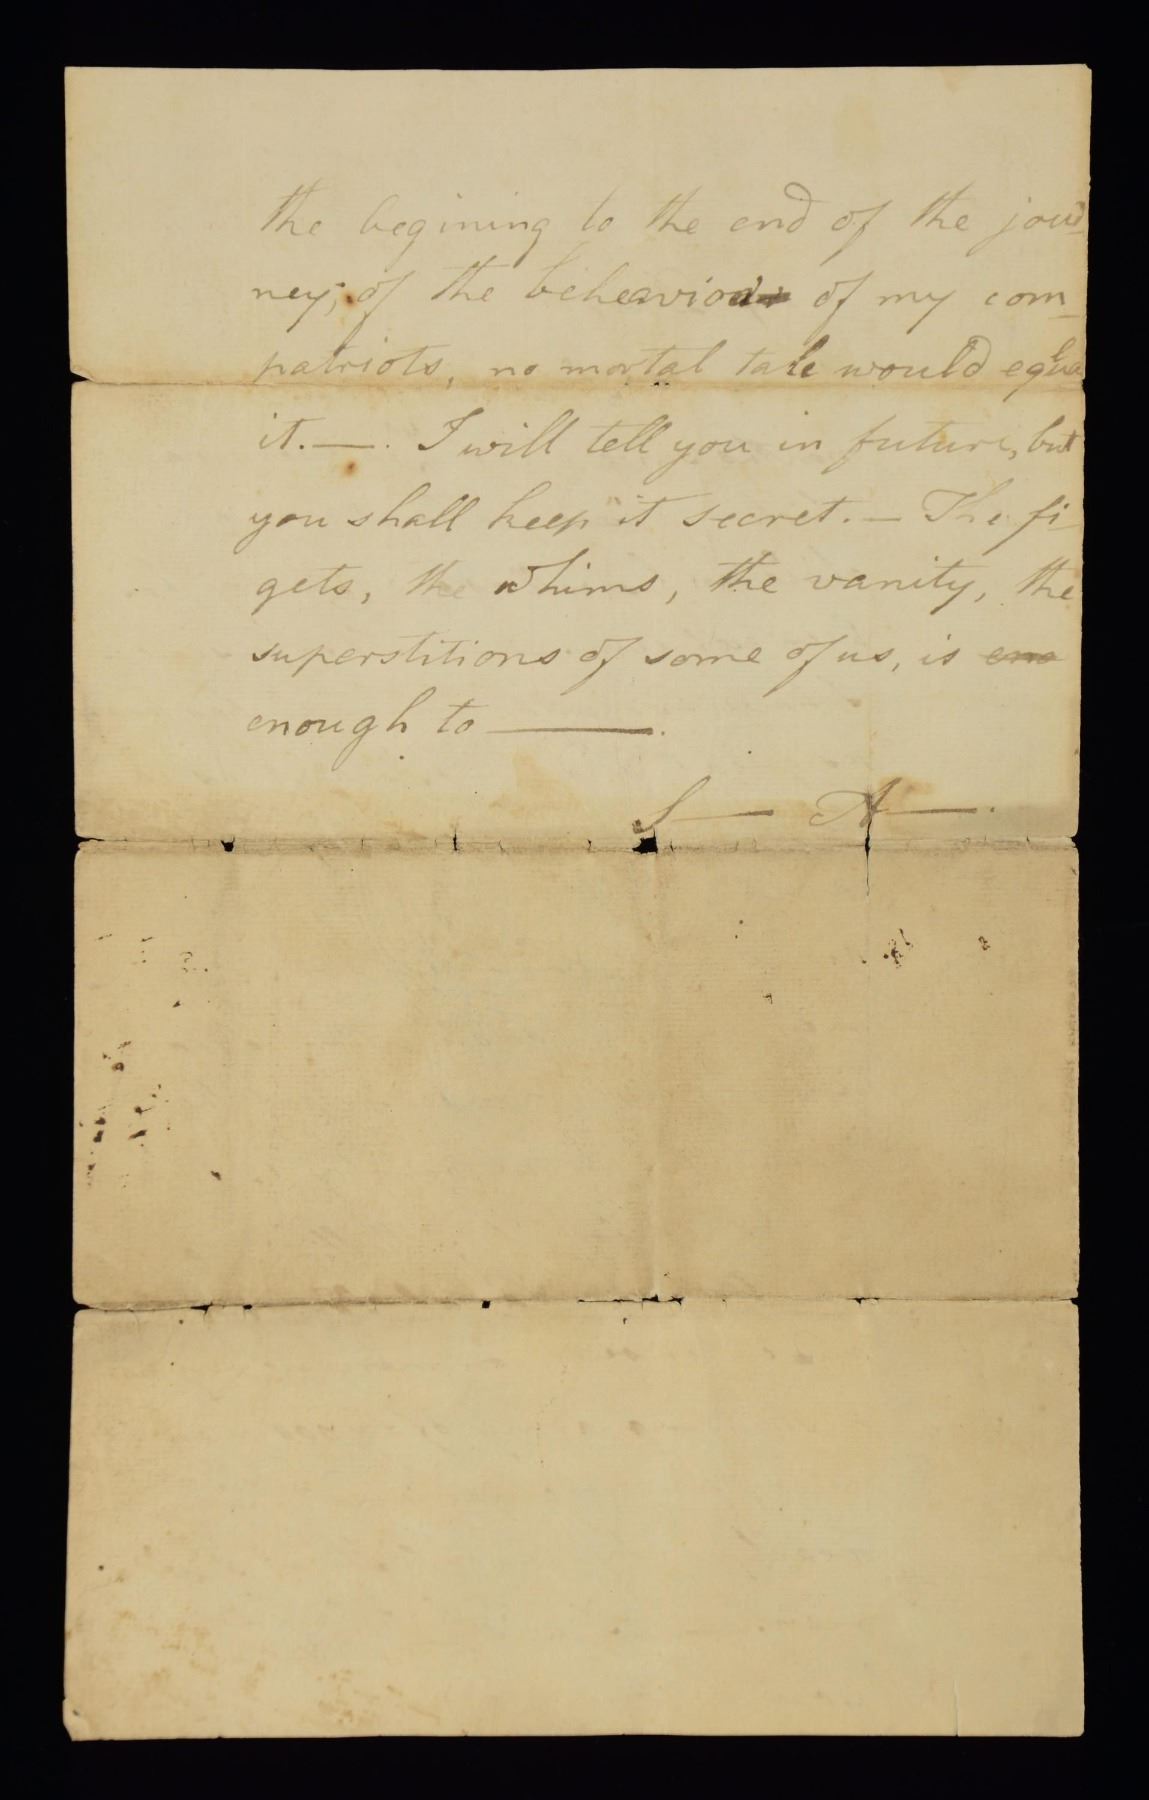 the begining to the end of the jour-
ney, of the beheavior of my com-
patriots, no mortal tale would equal
it. —. I will tell you in future, but
you shall keep it secret. — The fi
gets, the whims, the vanity, the
superstitions of some of us, is eno
enough to ———.
S— A—.